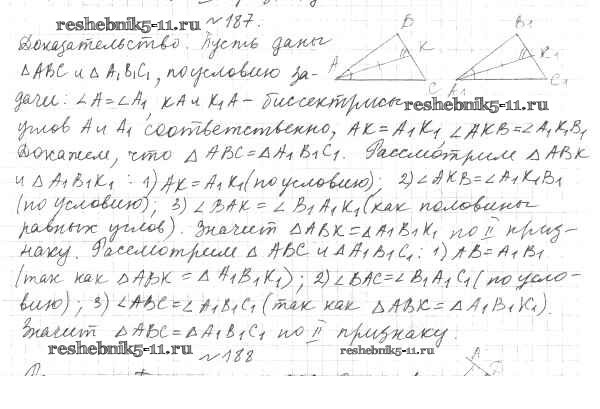 reshebnik5-11.ru №187.
Доказательство. Пусть даны
△ABC и △A₁B₁C₁, по условию за-
дачи: ∠A=∠A₁, KA и K₁A - биссектрисы
reshebnik5-11.ru
углов A и A₁ соответственно, AK=A₁K₁, ∠AKB=∠A₁K₁B₁
Докажем, что △ABC=△A₁B₁C₁. Рассмотрим △ABK
и △A₁B₁K₁: 1) AK=A₁K₁(по условию); 2)∠AKB=∠A₁K₁B₁
(по условию); 3) ∠BAK=∠B₁A₁K₁(как половины
равных углов). Значит △ABK=△A₁B₁K₁ по II приз-
наку. Рассмотрим △ABC и △A₁B₁C₁: 1) AB=A₁B₁
(так как △ABK=△A₁B₁K₁); 2)∠BAC=∠B₁A₁C₁(по усло-
вию); 3) ∠ABC=∠A₁B₁C₁(так как △ABK=△A₁B₁K₁).
Значит △ABC=△A₁B₁C₁ по II признаку.
reshebnik5-11.ru №188 reshebnik5-11.ru
A
B
K
A
C
B₁
K₁
A₁
C₁